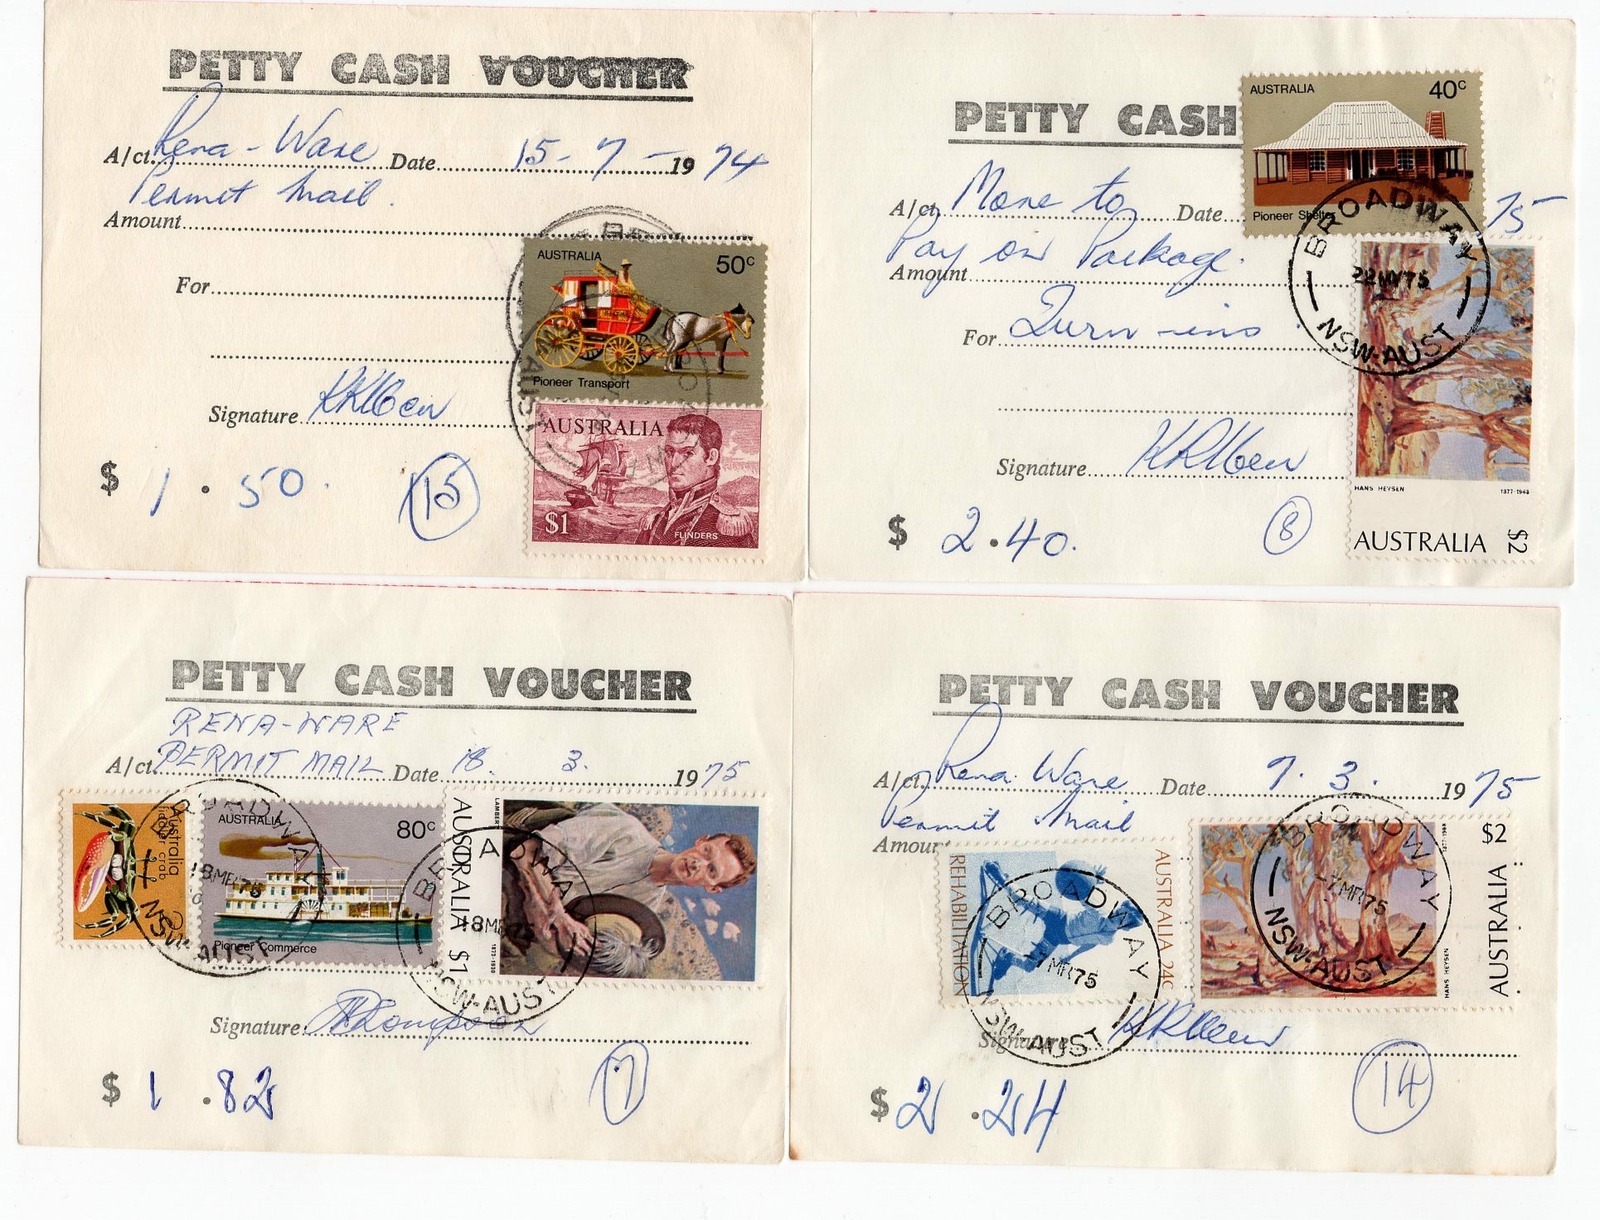 PETTY CASH VOUCHER
A/ct. Rena-Ware Date 15-7-1974
Permit Mail.
Amount
For
Signature
$ 1.50. 15
AUSTRALIA 50c
Pioneer Transport
AUSTRALIA
$1 FLINDERS
PETTY CASH
A/ct. More to Date 75
Pay on Package.
Amount
For Turn-ins
Signature
$ 2.40. 8
AUSTRALIA 40c
Pioneer Shelter
BROADWAY
22MY75
NSW-AUST
HANS HEYSEN 1877-1968
AUSTRALIA $2
PETTY CASH VOUCHER
RENA-WARE
A/ct. PERMIT MAIL Date 18. 3. 1975
Australia
fiddler crab
2c
AUSTRALIA 80c
Pioneer Commerce
BROADWAY
18MR75
NSW-AUST
LAMBERT 1873-1930
AUSTRALIA $1
BROADWAY
18MR75
NSW-AUST
Signature
$ 1.82 7
PETTY CASH VOUCHER
A/ct. Rena Ware Date 7. 3. 1975
Permit Mail
Amount
REHABILITATION
AUSTRALIA 24c
BROADWAY
-7MR75
NSW-AUST
HANS HEYSEN 1877-1968
AUSTRALIA $2
BROADWAY
-7MR75
NSW-AUST
Signature
$ 2.24 14